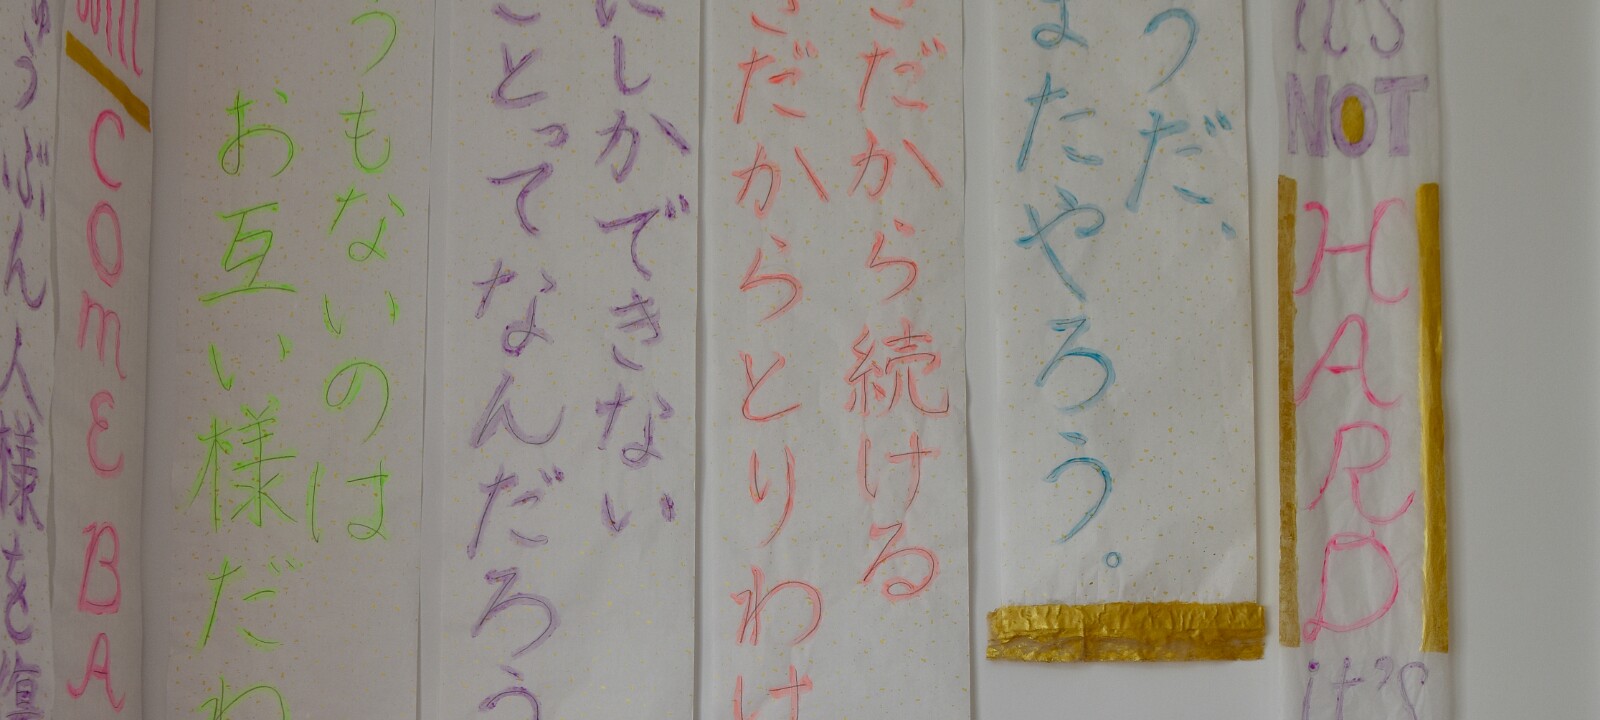 it's
NOT
HARD
it's
つだ、
またやろう。
だから続ける
だからとりわけ
にしかできない
ことってなんだろう
つもないのは
お互い様だわ
COME BA
ゅうぶん人様を